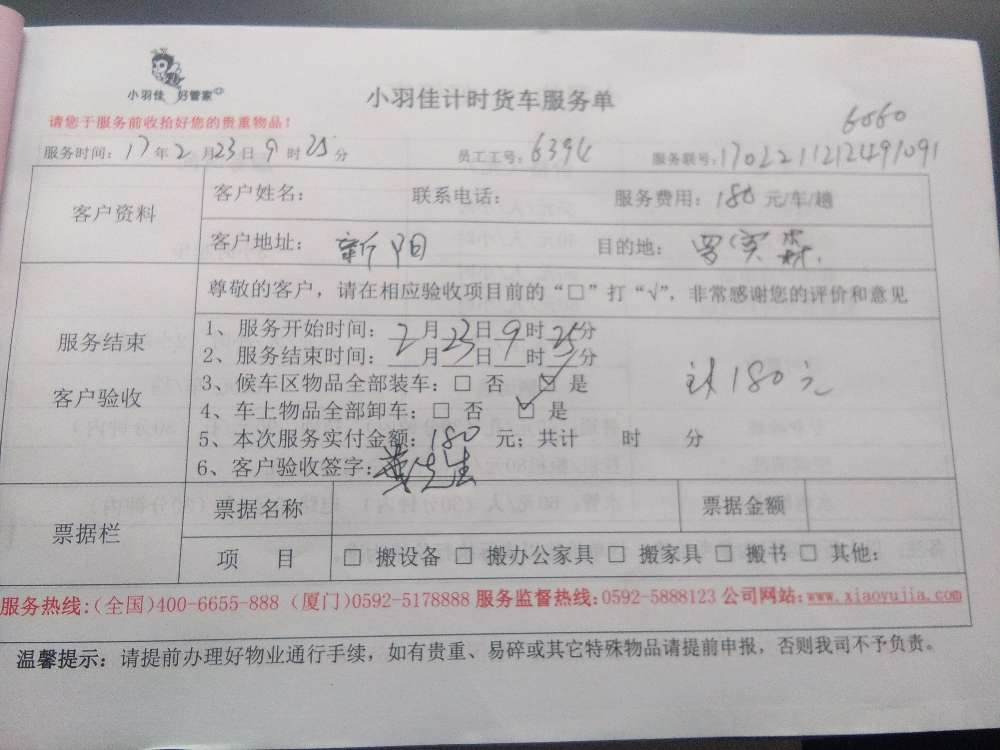 小羽佳 好管家
小羽佳计时货车服务单
请您于服务前收拾好您的贵重物品！
6060
服务时间：17年2月23日9时25分 员工工号：6394 服务联号：1702211212491091
客户资料 客户姓名： 联系电话： 服务费用：180元/车/趟
客户地址：新阳 目的地：罗宾森
尊敬的客户，请在相应验收项目前的“□”打“√”，非常感谢您的评价和意见
服务结束
客户验收
1、服务开始时间：2月23日9时25分
2、服务结束时间：2月23日9时25分
3、候车区物品全部装车：□ 否 ☑ 是
4、车上物品全部卸车：□ 否 ☑ 是
5、本次服务实付金额：180元；共计 时 分
6、客户验收签字：黄先生
计180元
票据栏 票据名称 票据金额
项 目 □ 搬设备 □ 搬办公家具 □ 搬家具 □ 搬书 □ 其他：
服务热线：(全国)400-6655-888（厦门)0592-5178888 服务监督热线：0592-5888123 公司网站：www.xiaoyujia.com
温馨提示：请提前办理好物业通行手续，如有贵重、易碎或其它特殊物品请提前申报，否则我司不予负责。